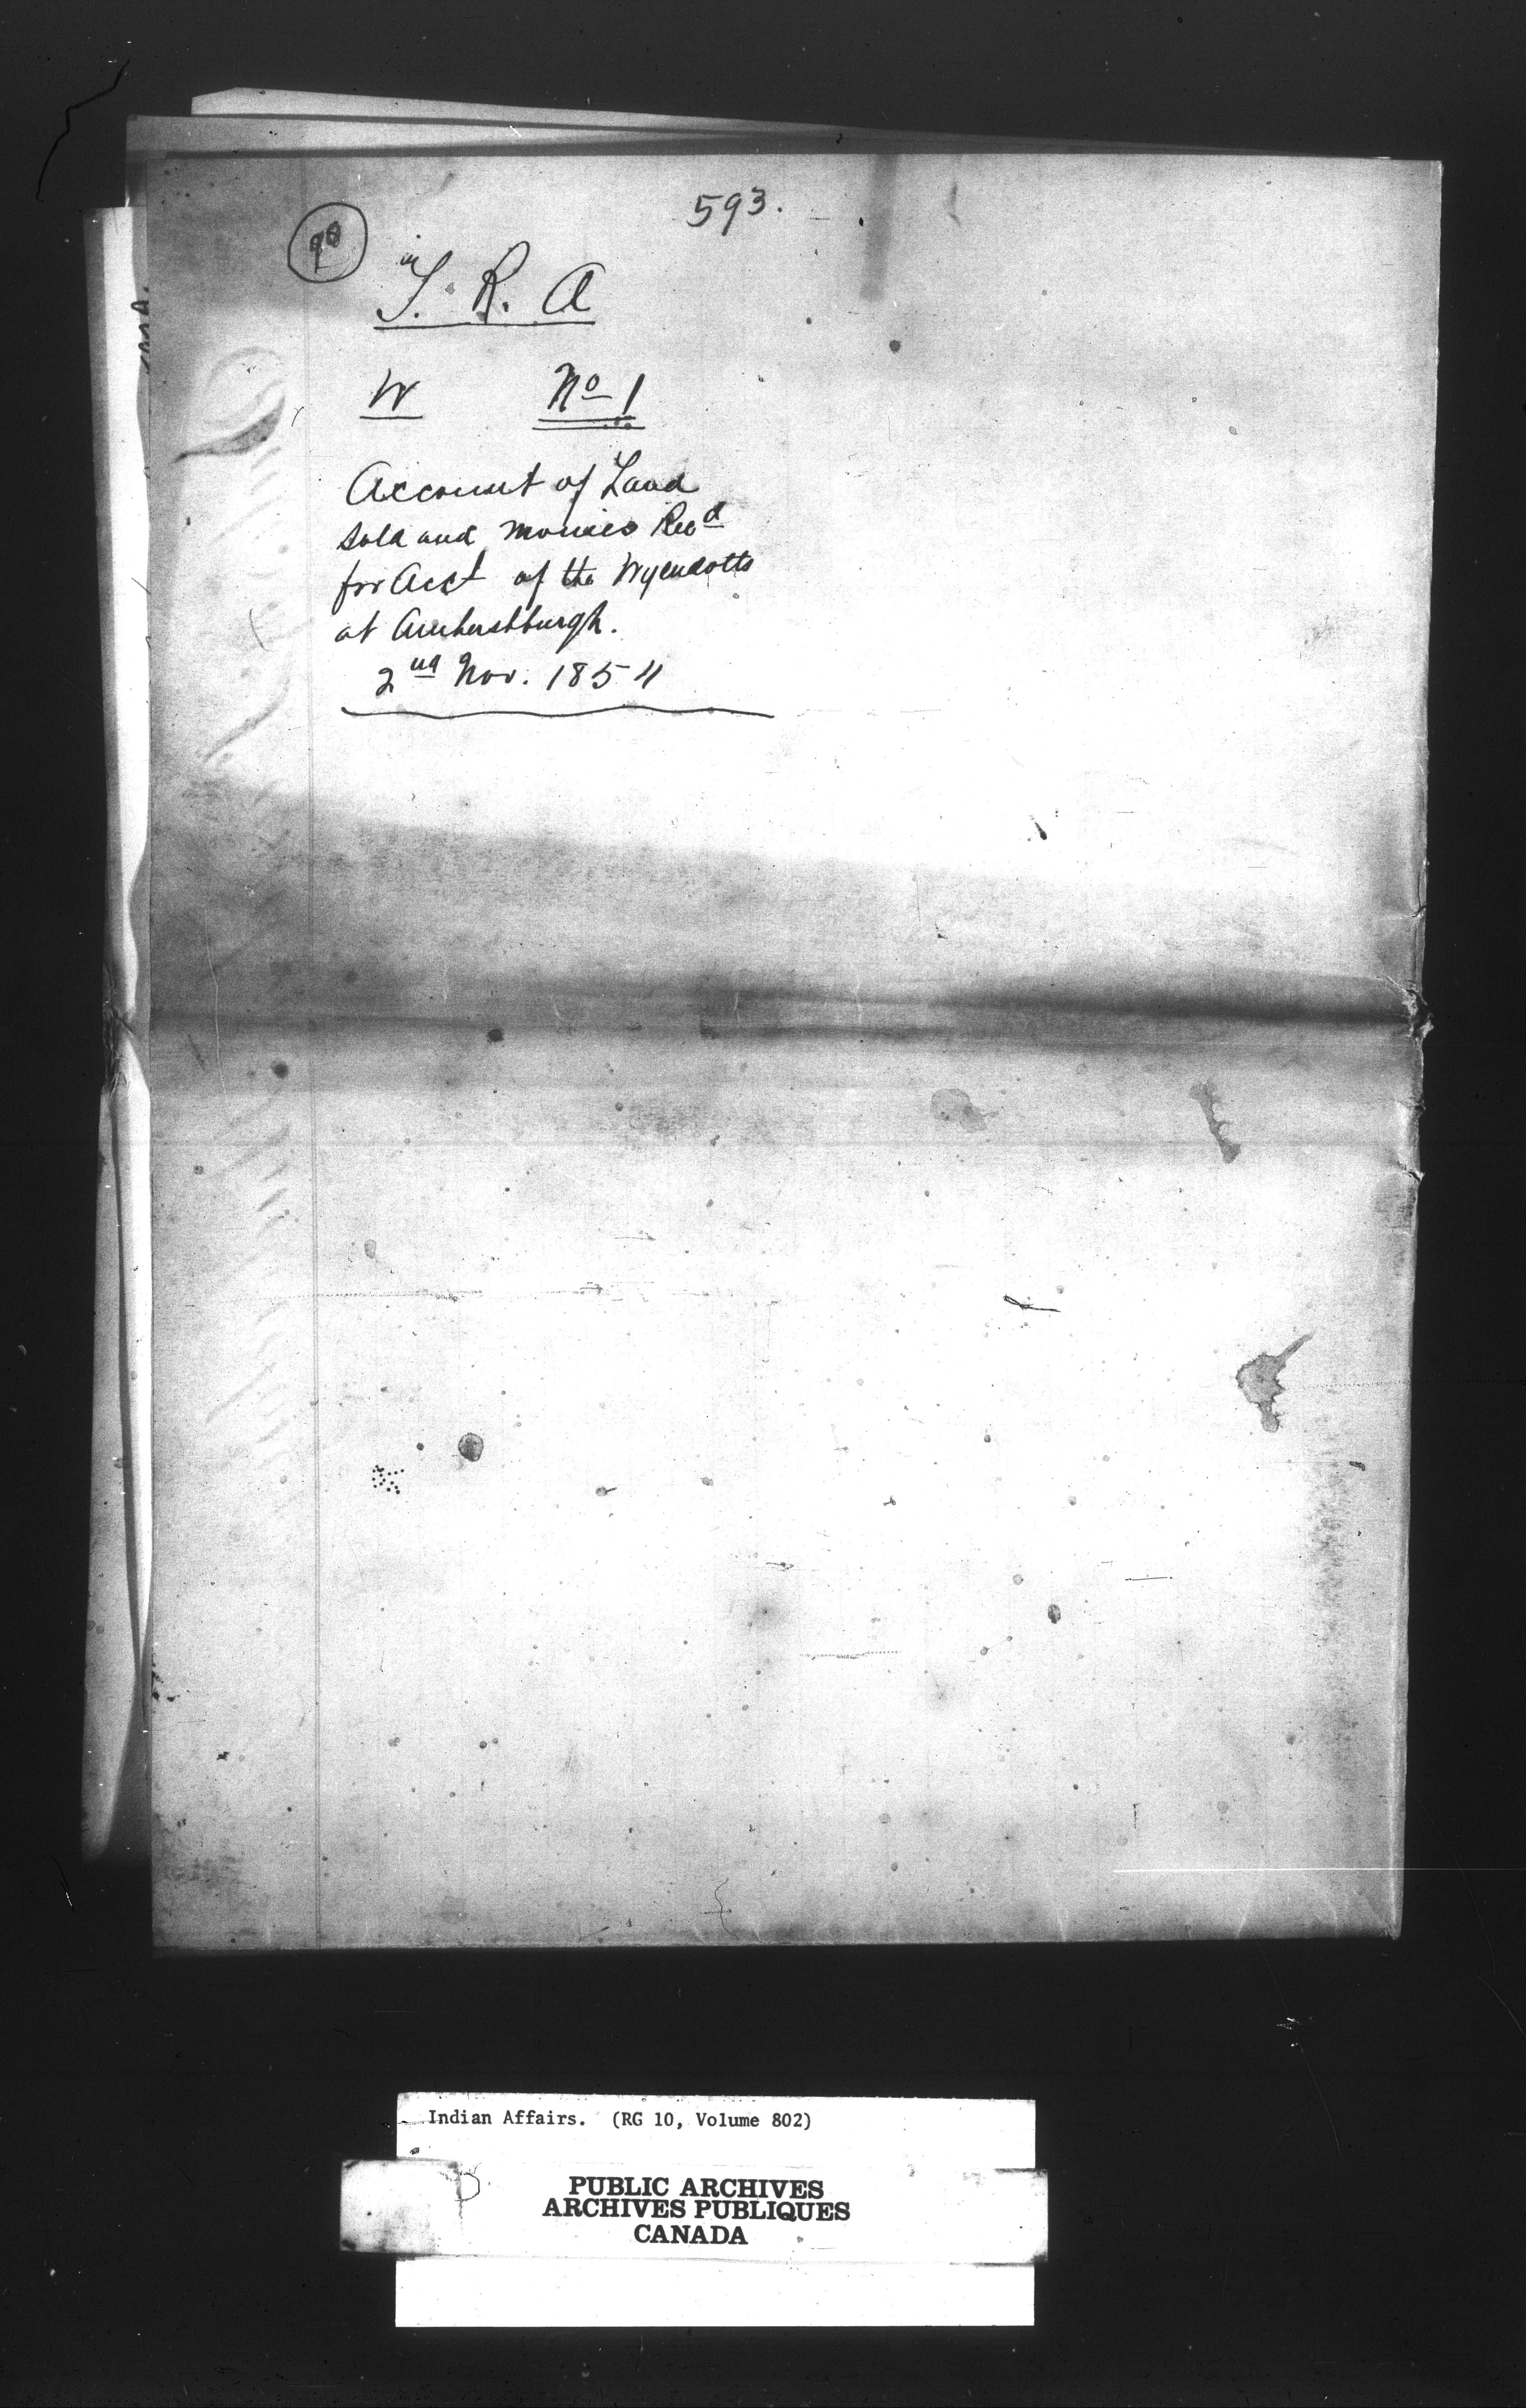 593.
T. R. A
W No 1
Account of Land
sold and monies Recd
for Acct of the Wyendotts
at Amherstburgh.
2nd Nov. 1854
Indian Affairs. (RG 10, Volume 802)
PUBLIC ARCHIVES
ARCHIVES PUBLIQUES
CANADA